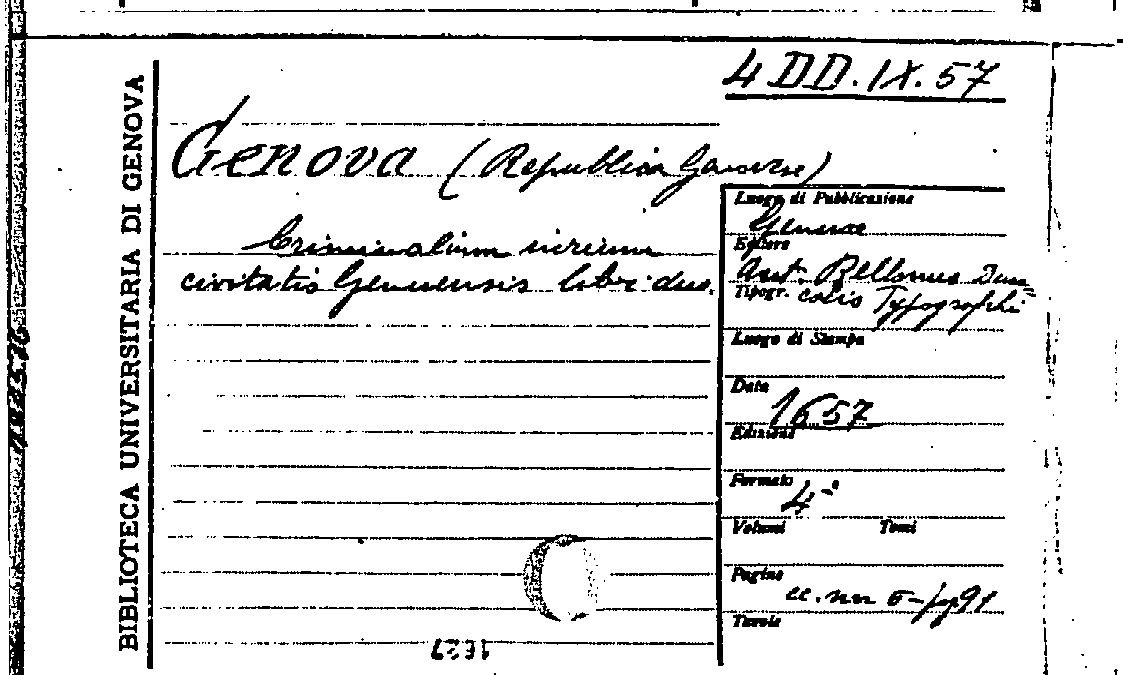 4 DD. IX. 57
BIBLIOTECA UNIVERSITARIA DI GENOVA
Genova (Repubblica Genovese)
Criminalium iurium
civitatis Genuensis libri duo.
Luogo di Pubblicazione
Genuae
Editore
Ant. Bellonus Dun=
Tipogr. calis Typographi
Luogo di Stampa
Data
1657
Edizione
Formato
4°
Volumi Tomi
Pagine
cc. nn 6 - pp 91
Tavole
1627